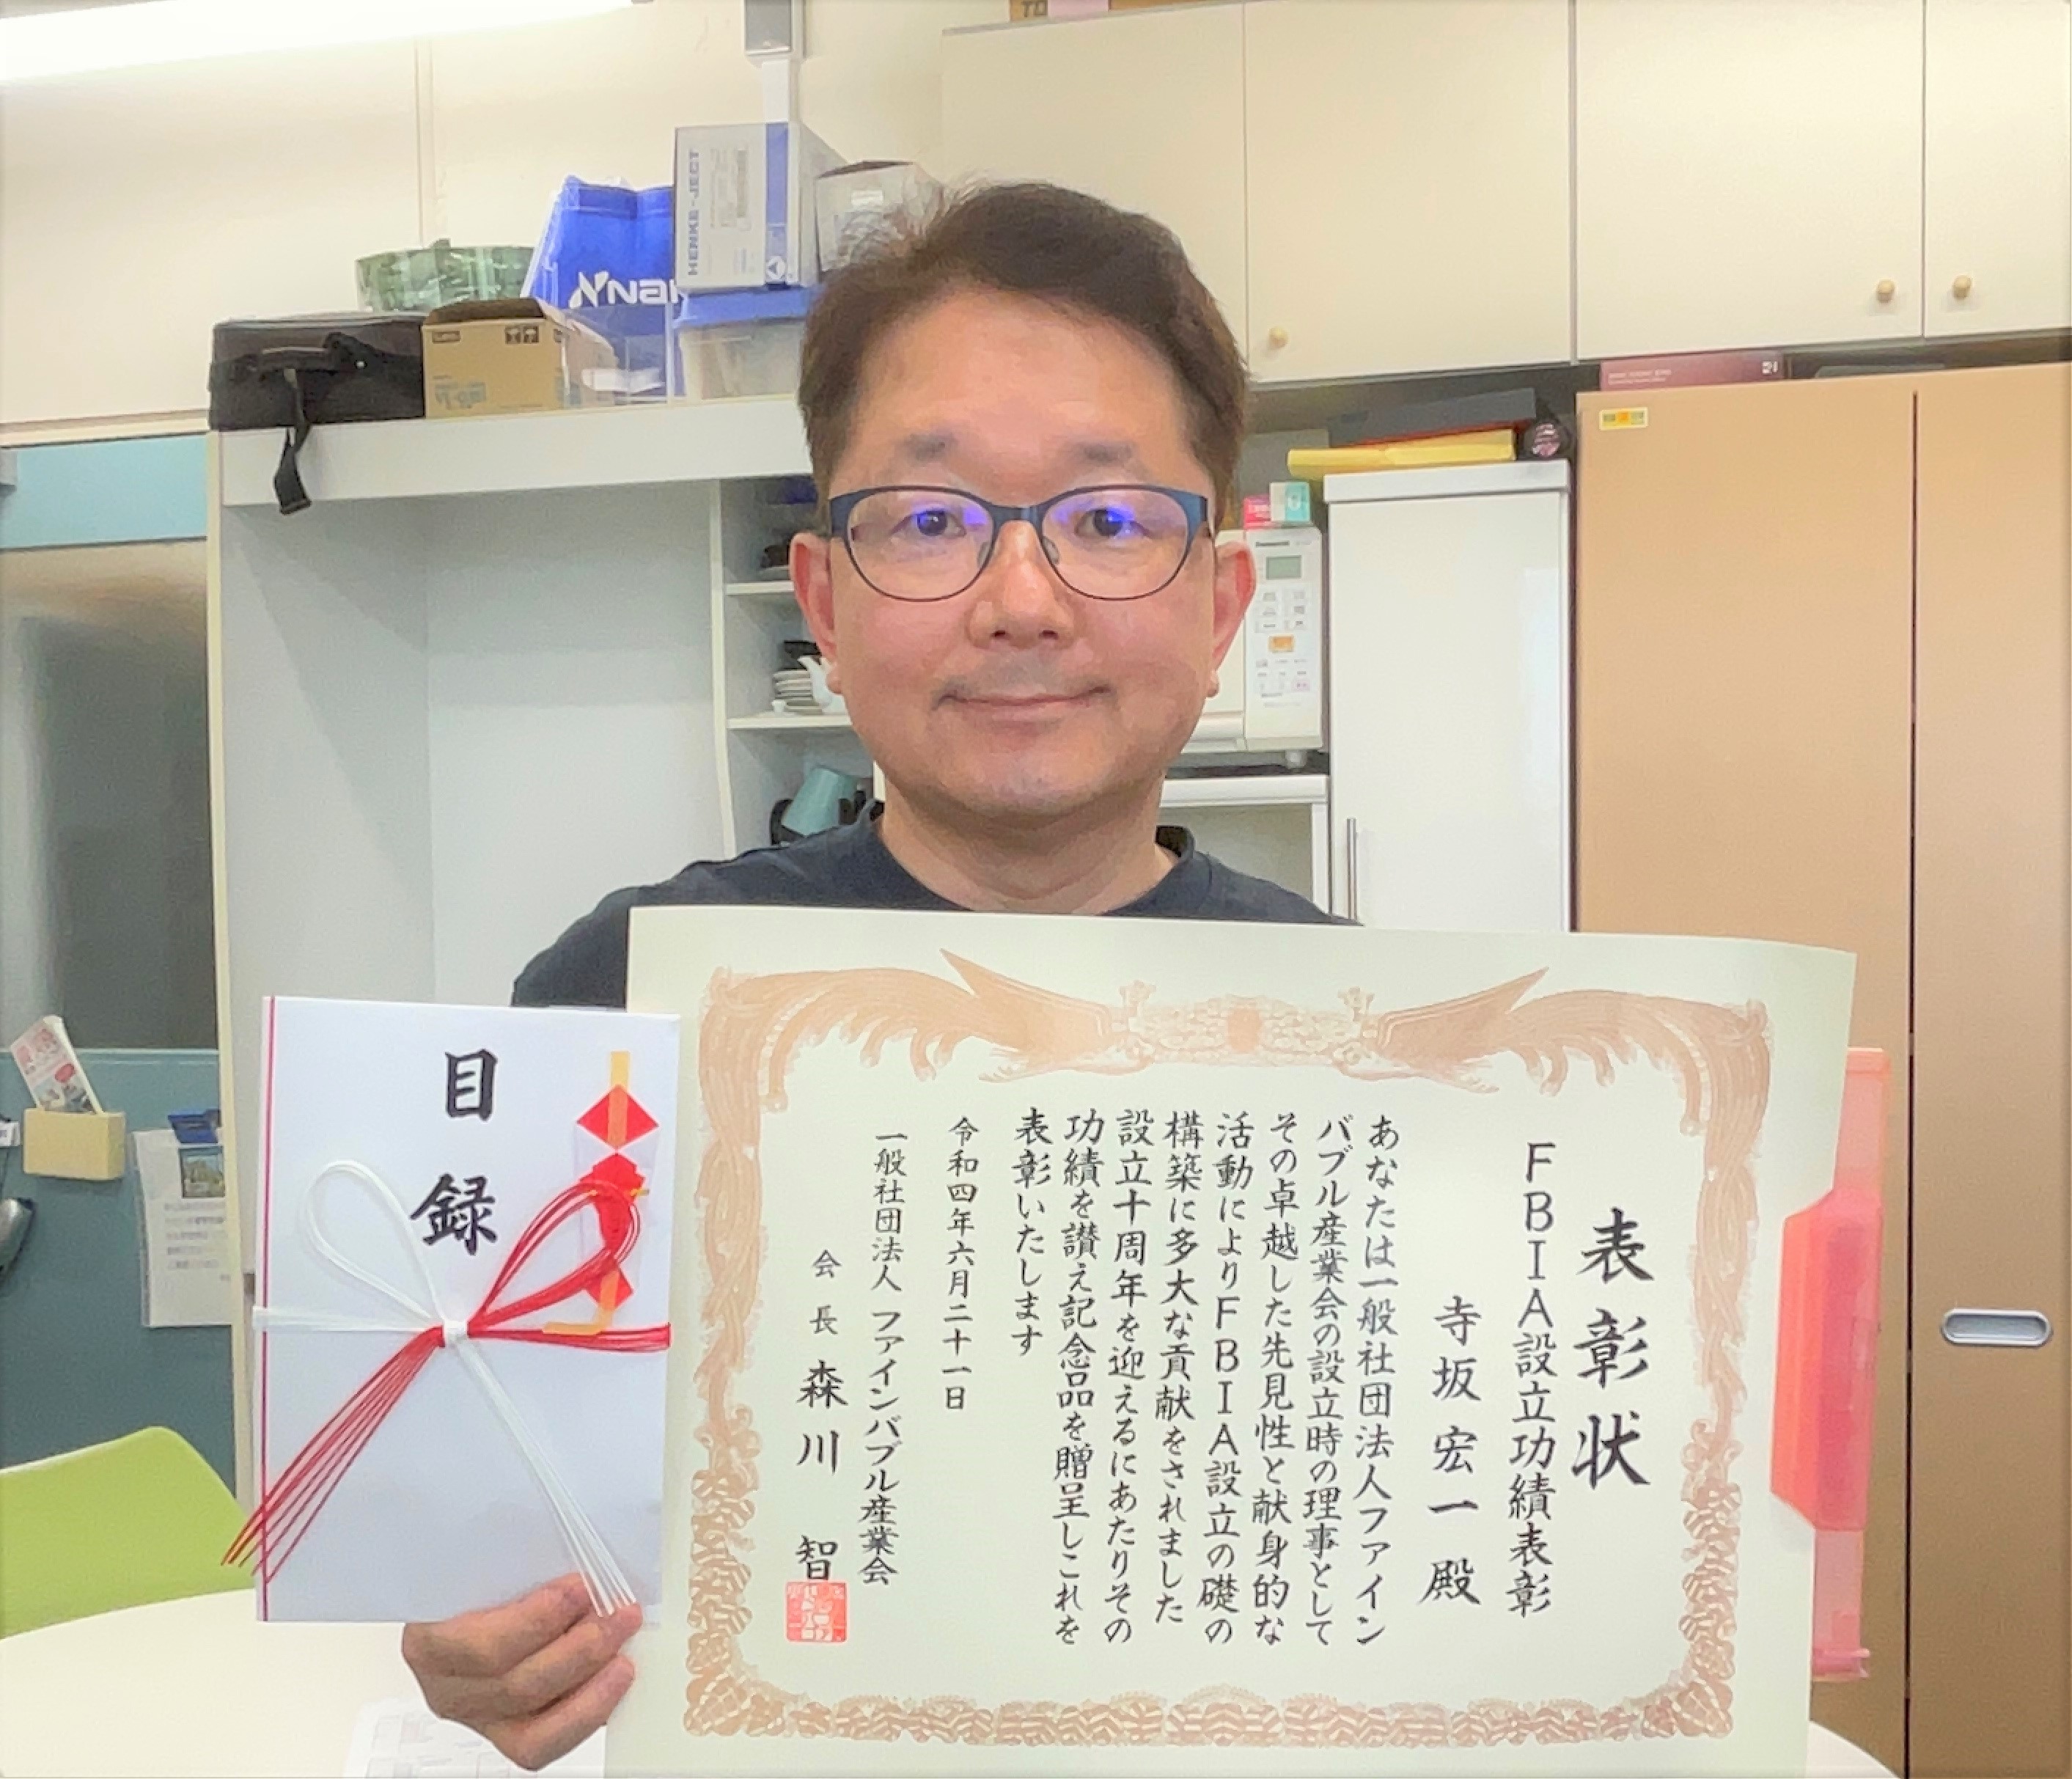 表彰状
FBIA設立功績表彰
寺坂宏一 殿
あなたは一般社団法人ファイン
バブル産業会の設立時の理事として
その卓越した先見性と献身的な
活動によりFBIA設立の礎の
構築に多大な貢献をされました
設立十周年を迎えるにあたりその
功績を讃え記念品を贈呈しこれを
表彰いたします
令和四年六月二十一日
一般社団法人 ファインバブル産業会
会長 森川 智
目録
HENKE-JECT
Panasonic